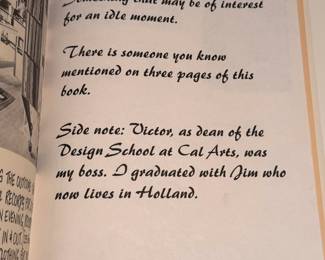 Something that may be of interest
for an idle moment.
There is someone you know
mentioned on three pages of this
book.
Side note: Victor, as dean of the
Design School at Cal Arts, was
my boss. I graduated with Jim who
now lives in Holland.
THE OUTCOME
RECORDER
EVENING
IN A OUT